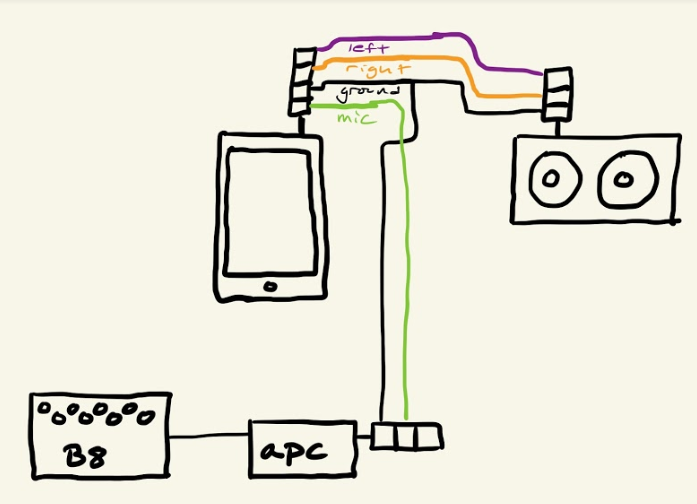 left
right
ground
mic
B8
apc